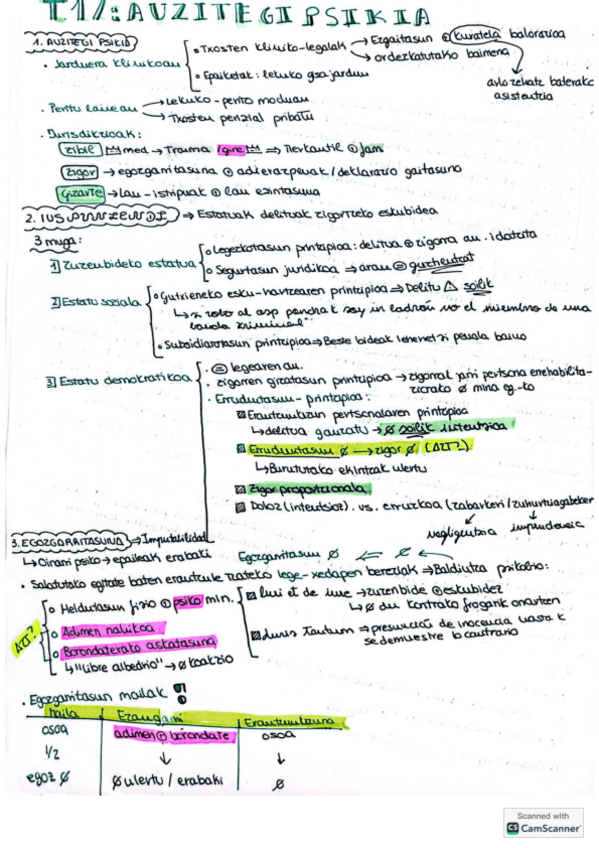 T17: AUZITEGI PSIKIA
1. AUZITEGI PSIKIA
• Jarduera klinikoan
• Txosten kliniko-legalak → Ezgaitasun kuratela balorazioa
→ ordezkatutako baimena
• Epaiketak: lekuko gsa jardun
avlo zehatz baterako asistentzia
• Peritu lanean → Lekuko-perito moduan
→ Txosten perizial pribatu
• Jurisdikzioak:
Zibil med → Trauma /gine ⇒ Merkantil @ fam
Zigor → egozgarritasuna adierazpenak / deklarazio gaitasuna
Gizarte → Lan-istripuak lan ezintasuna
2. IUS PUNIENDI ⇒ Estatuak delituak zigortzeko eskubidea
3 muga:
1) Zuzenbideko estatua
• Legezkotasun printzipioa: delitua zigorra au. idatzita
• Segurtasun juridikoa ⇒ arau = guztientzat
2) Estatu soziala
• Gutxieneko esku-hartzearen printzipioa ⇒ Delitu ⚠ soilik
↳ x robo al asp pendrak soy in ladrón no el miembro de una banda kriminal"
• Subsidiarotasun printzipioa ⇒ Beste bideak lehenetsi penala baino
3) Estatu demokratikoa
• = legearen au.
• zigorren gizatasun printzipioa → zigorrak jarri pertsona errehabilitatzeko ∅ mina eg.-ko
• Erruduntasun-printzipioa:
Erantzukizun pertsonalaren printzipioa
↳ delitua gauzatu → ∅ soilik intentzioa
Erruduntasun ∅ → zigor ∅ (AZT?)
↳ Burututako ekintzak ulertu
Zigor proportzionala
Doloz (intentzioz) vs. erruzkoa (zabarkeri / zuhurtziagabekeri
negligentzia imprudenzia
3. EGOZGARRITASUNA → Imputabilidad
↳ Oinarri psiko → epaileak erabaki
Egozgarritasun ∅ ⇐ ∅ ←
• Salatutako egitate baten erantzule izateko lege-xedapen bereziak ⇒ Baldintza psikolno:
AZT?
• Heldutasun fisio psiko min.
• Adimen nahikoa
• Borondaterako askatasuna
↳ "libre albedrio" → ∅ koakzio
Iuri et de iure → zuzenbide eskubidez
↳ ∅ du kontrako frogarik onartzen
Iuris Tantum ⇒ presunción de inocencia hasta k se demuestre lo contrario
• Egozgarritasun mailak
Maila Ezaugarri Erantzukizuna
osoa adimen borondate osoa
1/2 ↓ ↓
egoz ∅ ∅ ulertu / erabaki ∅
Scanned with
CS CamScanner